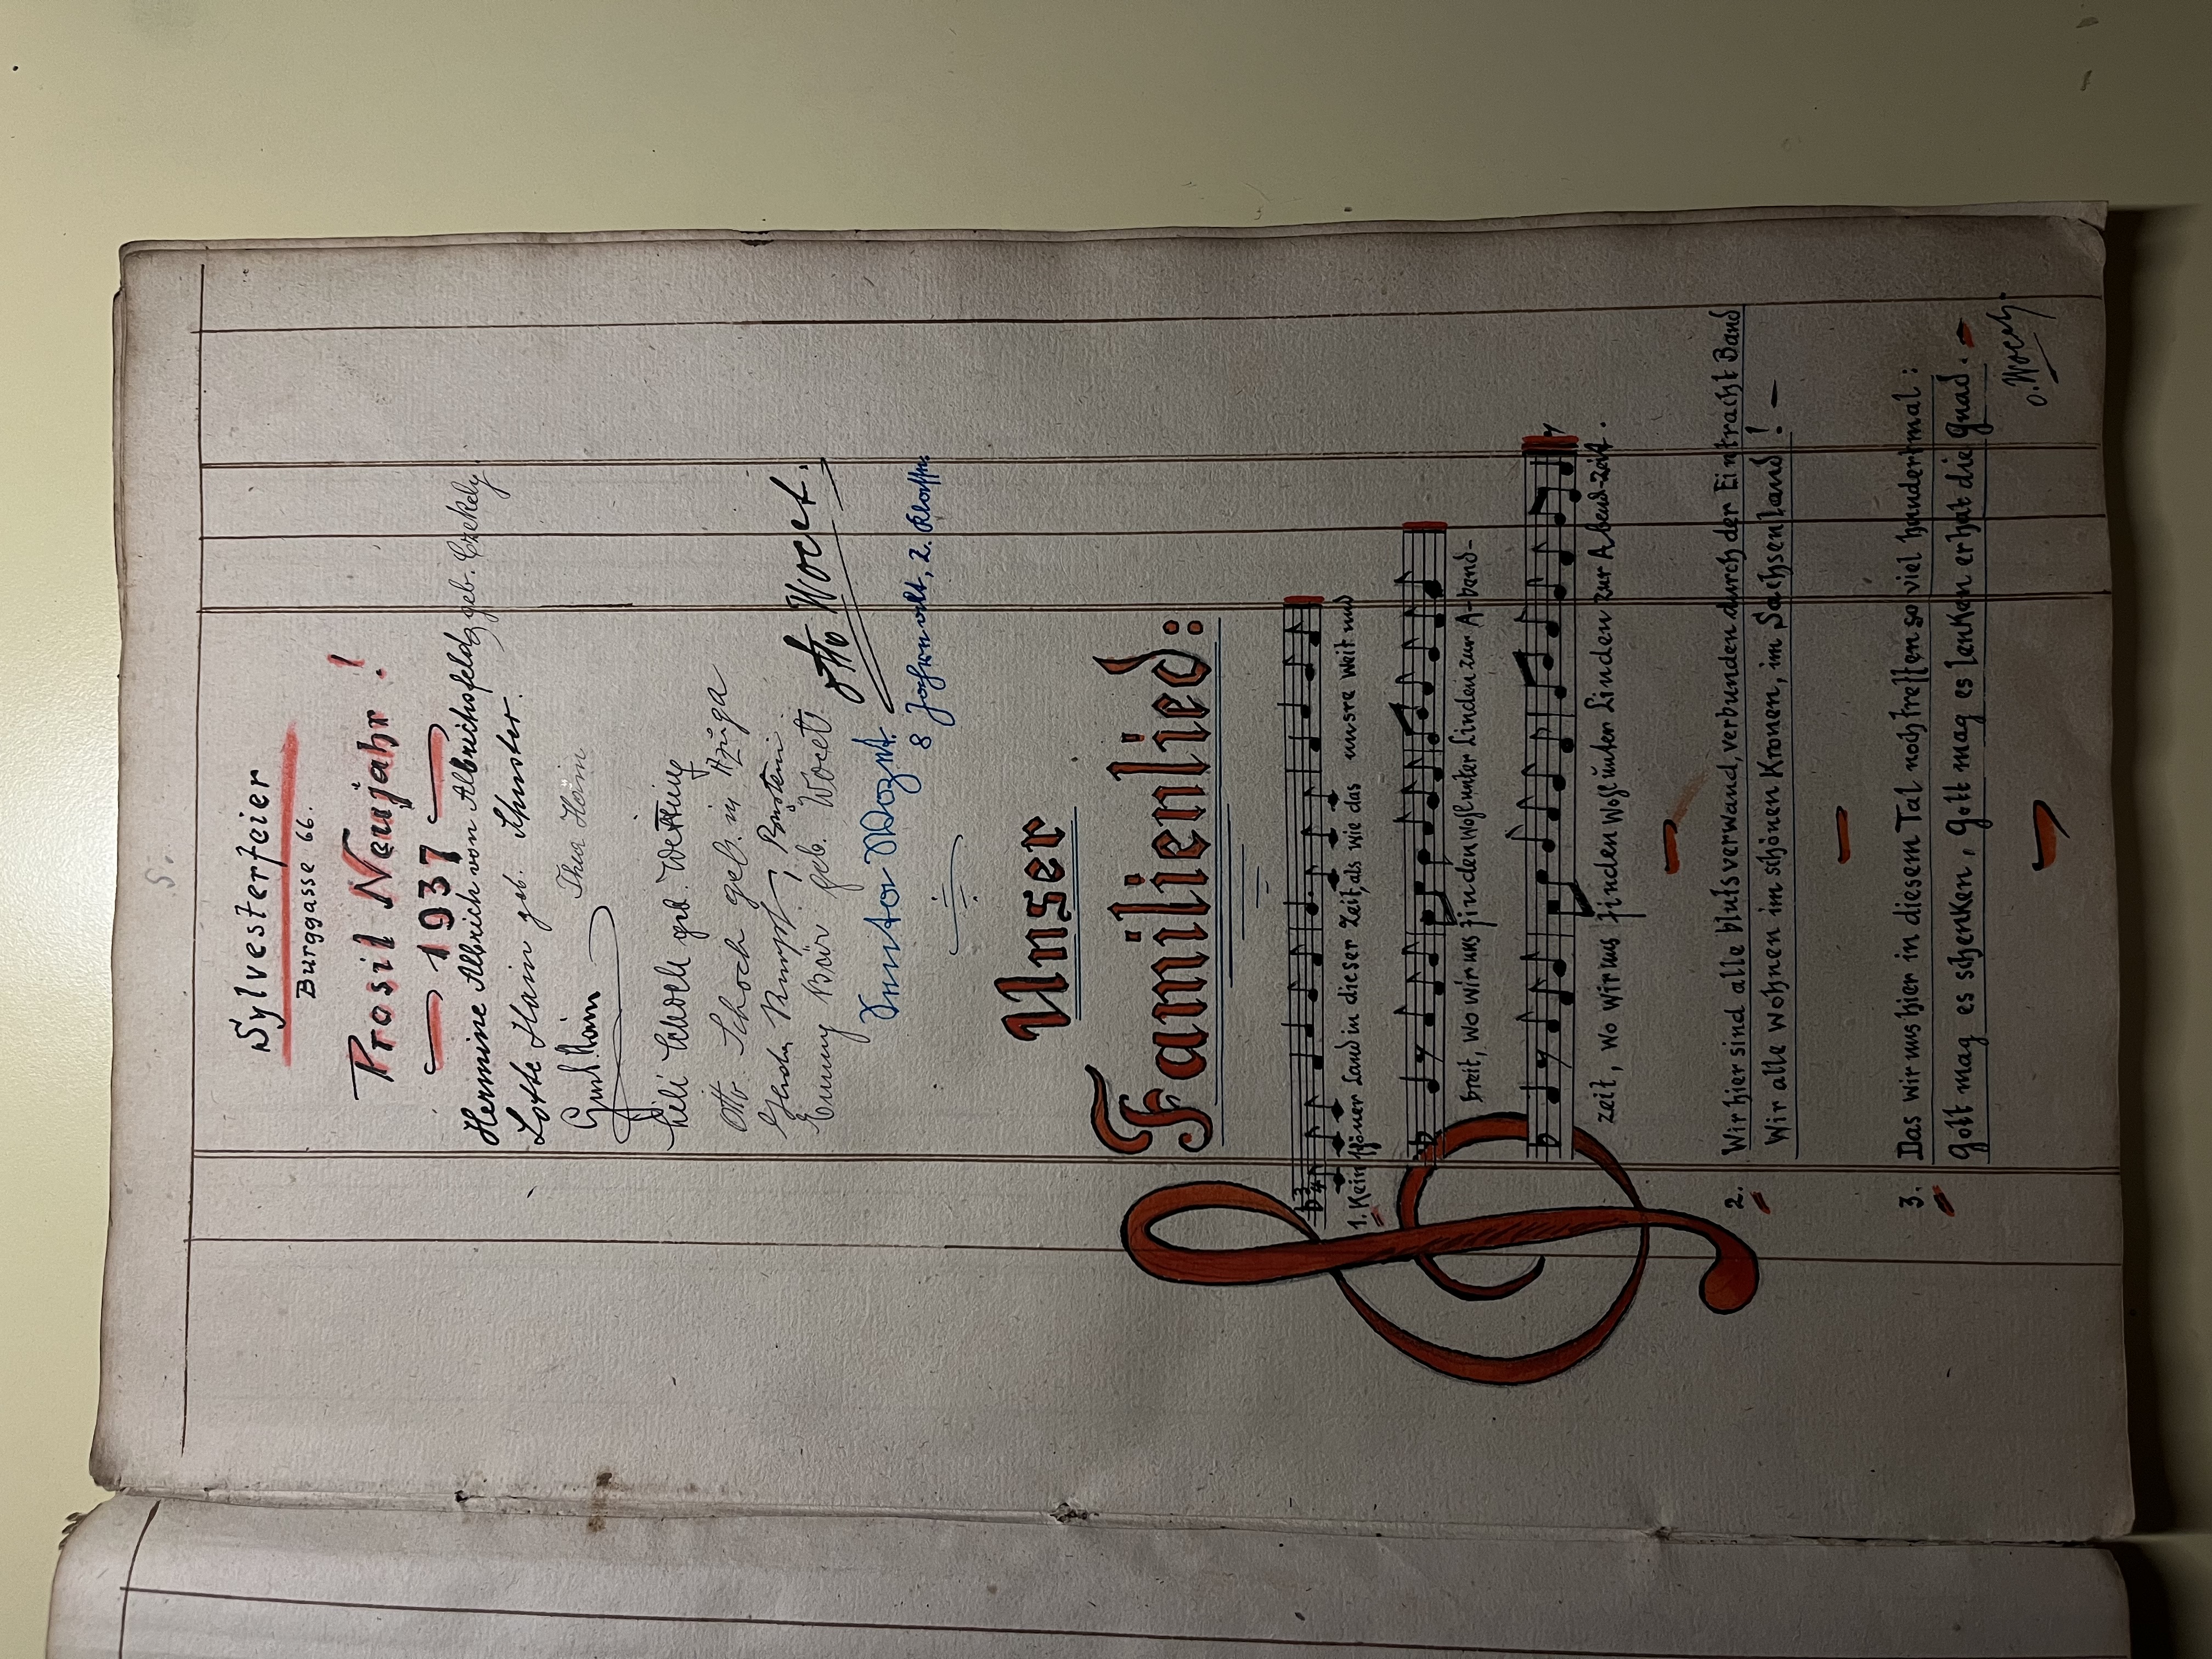 5.
Sylvesterfeier
Burggasse 66.
Prosit Neujahr!
1937
Hermine Albrich von Albrichsfeld geb. Czekely
Lotte Hain geb.
Thea Hain
Hain
Lili geb.
Otto Schoch geb. in Azuga
Emmy Bär geb. Wocet
Otto Wocet.
8 2.
Unser
Familienlied:
1. Kein schöner Land in dieser Zeit, als wie das unsre weit und
breit, wo wir uns finden wohl unter Linden zur A-bend-
zeit, wo wir uns finden wohl unter Linden zur Abend-zeit.
2. Wir hier sind alle blutsverwand, verbunden durch der Eintracht Band
Wir alle wohnen im schönen Kronen, im Sachsenland! –
3. Das wir uns hier in diesem Tal noch treffen so viel hundertmal:
Gott mag es schenken, Gott mag es lenken er hat die Gnad. –
O. Wocet.